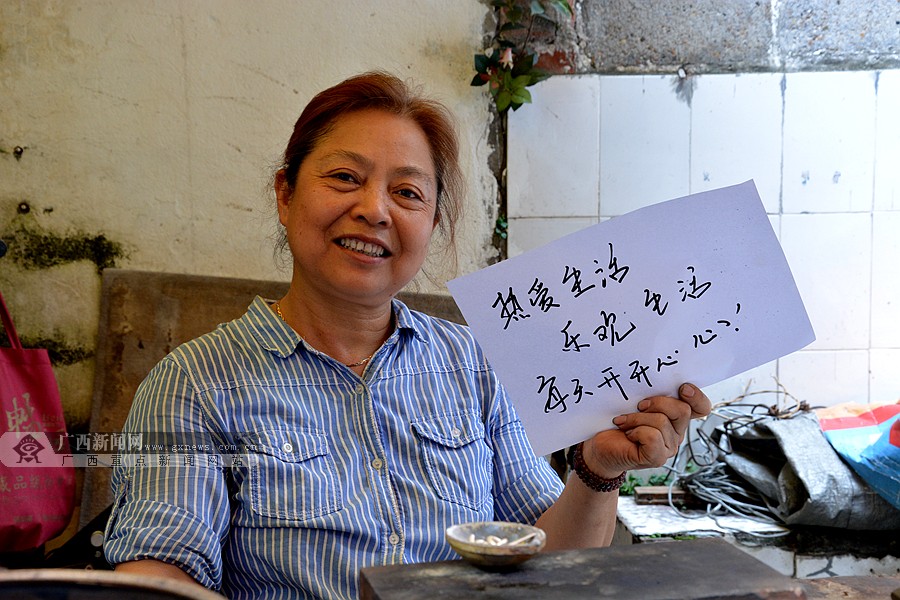 热爱生活
乐观生活
每天开开心心!
广西新闻网
www.gxnews.com
广西重点新闻网站